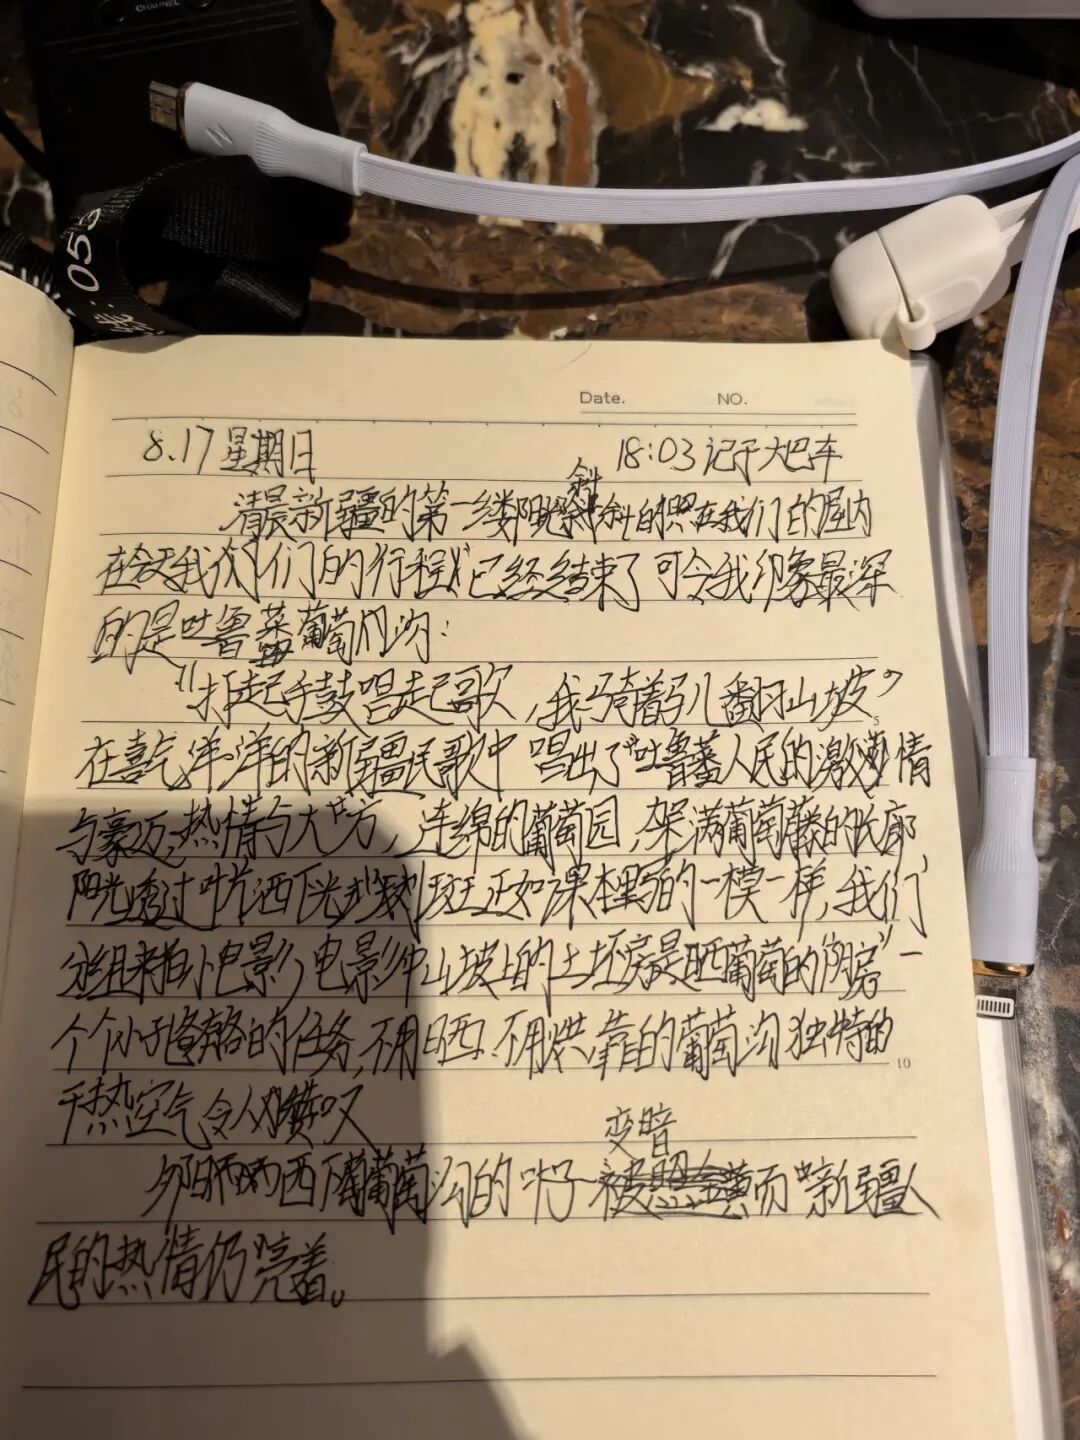 CHAUNEL
053
Date. NO.
8.17 星期日 18:03 记于大巴车
斜
清晨新疆的第一缕阳光斜的照在我们的屋内
在今天我们的行程已经结束了可令我印象最深
的是吐鲁番葡萄沟:
“打起手鼓唱起歌,我骑着马儿翻山坡”
5
在喜气洋洋的新疆民歌中 唱出了吐鲁蕃人民的激情
与豪迈,热情与大方,连绵的葡萄园,架满葡萄藤的长廊,
阳光透过叶片洒下光斑正如课本里写的一模一样,我们
分组来拍小电影,电影中山坡上的土坯房是晒葡萄的“阴房”一
个个小小的任务,不用晒.不用烘,靠的葡萄沟独特的
10
干热空气令人赞叹
变暗
夕阳西下葡萄沟的叶子被而新疆人
民的热情仍亮着。